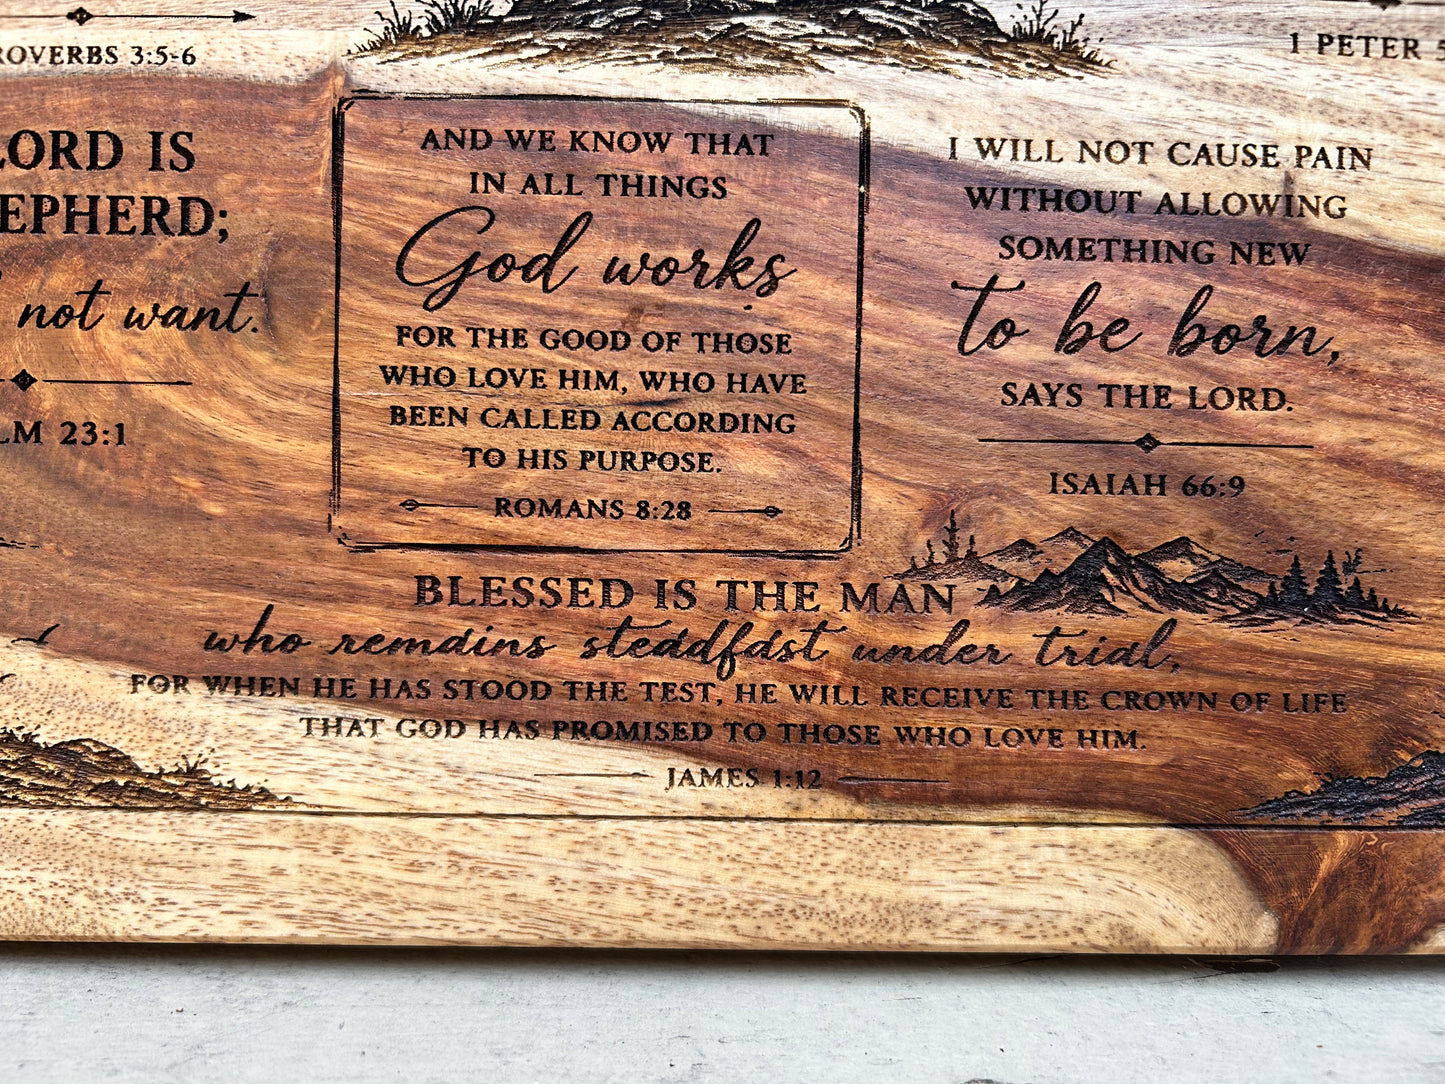 ROVERBS 3:5-6
1 PETER 5
LORD IS
EPHERD;
not want.
LM 23:1
AND WE KNOW THAT
IN ALL THINGS
God works
FOR THE GOOD OF THOSE
WHO LOVE HIM, WHO HAVE
BEEN CALLED ACCORDING
TO HIS PURPOSE.
ROMANS 8:28
I WILL NOT CAUSE PAIN
WITHOUT ALLOWING
SOMETHING NEW
to be born,
SAYS THE LORD.
ISAIAH 66:9
BLESSED IS THE MAN
who remains steadfast under trial,
FOR WHEN HE HAS STOOD THE TEST, HE WILL RECEIVE THE CROWN OF LIFE
THAT GOD HAS PROMISED TO THOSE WHO LOVE HIM.
JAMES 1:12